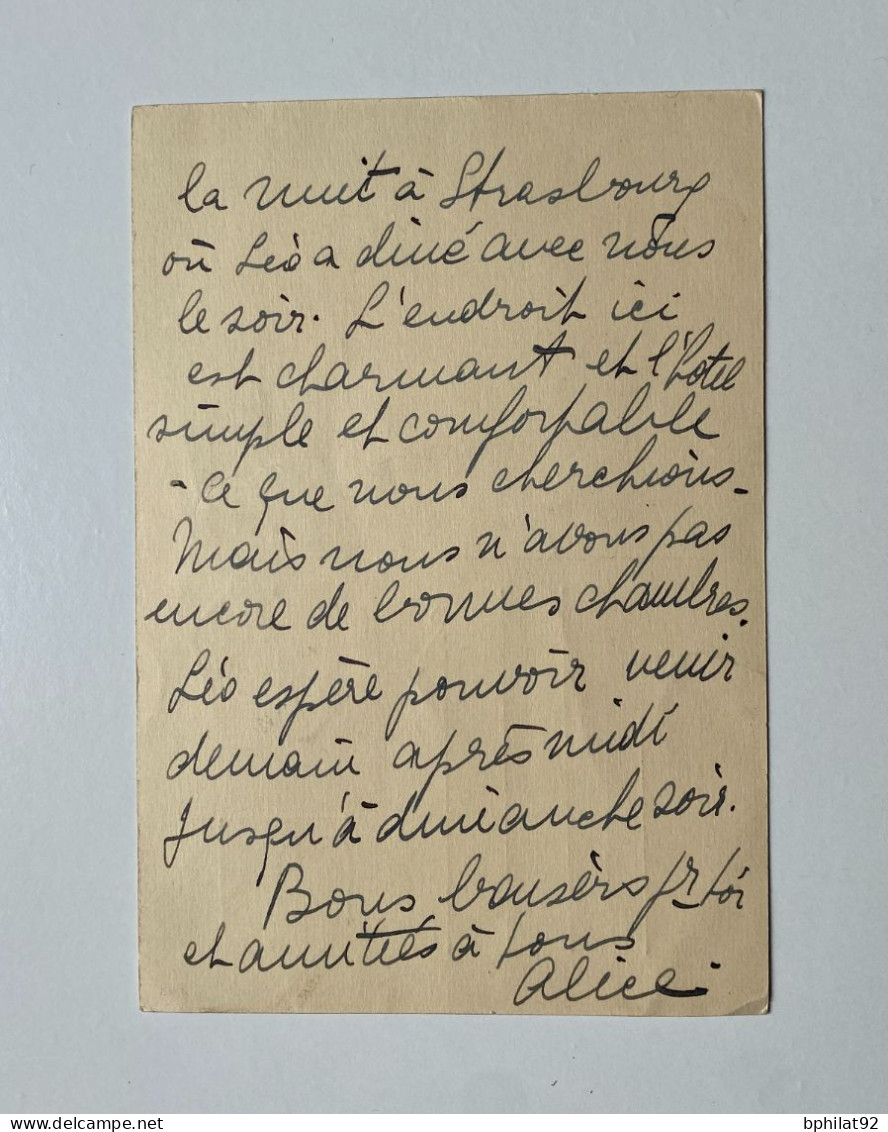 la nuit à Strasbourg
où Léo a diné avec nous
le soir. L'endroit ici
est charmant et l'hotel
simple et comfortable
- ce que nous cherchions -
Mais nous n'avons pas
encore de bonnes chambres.
Léo espère pouvoir venir
demain après midi
jusqu'à dimanche soir.
Bons baisers pr toi
et amitiés à tous
Alice.
bphilat92